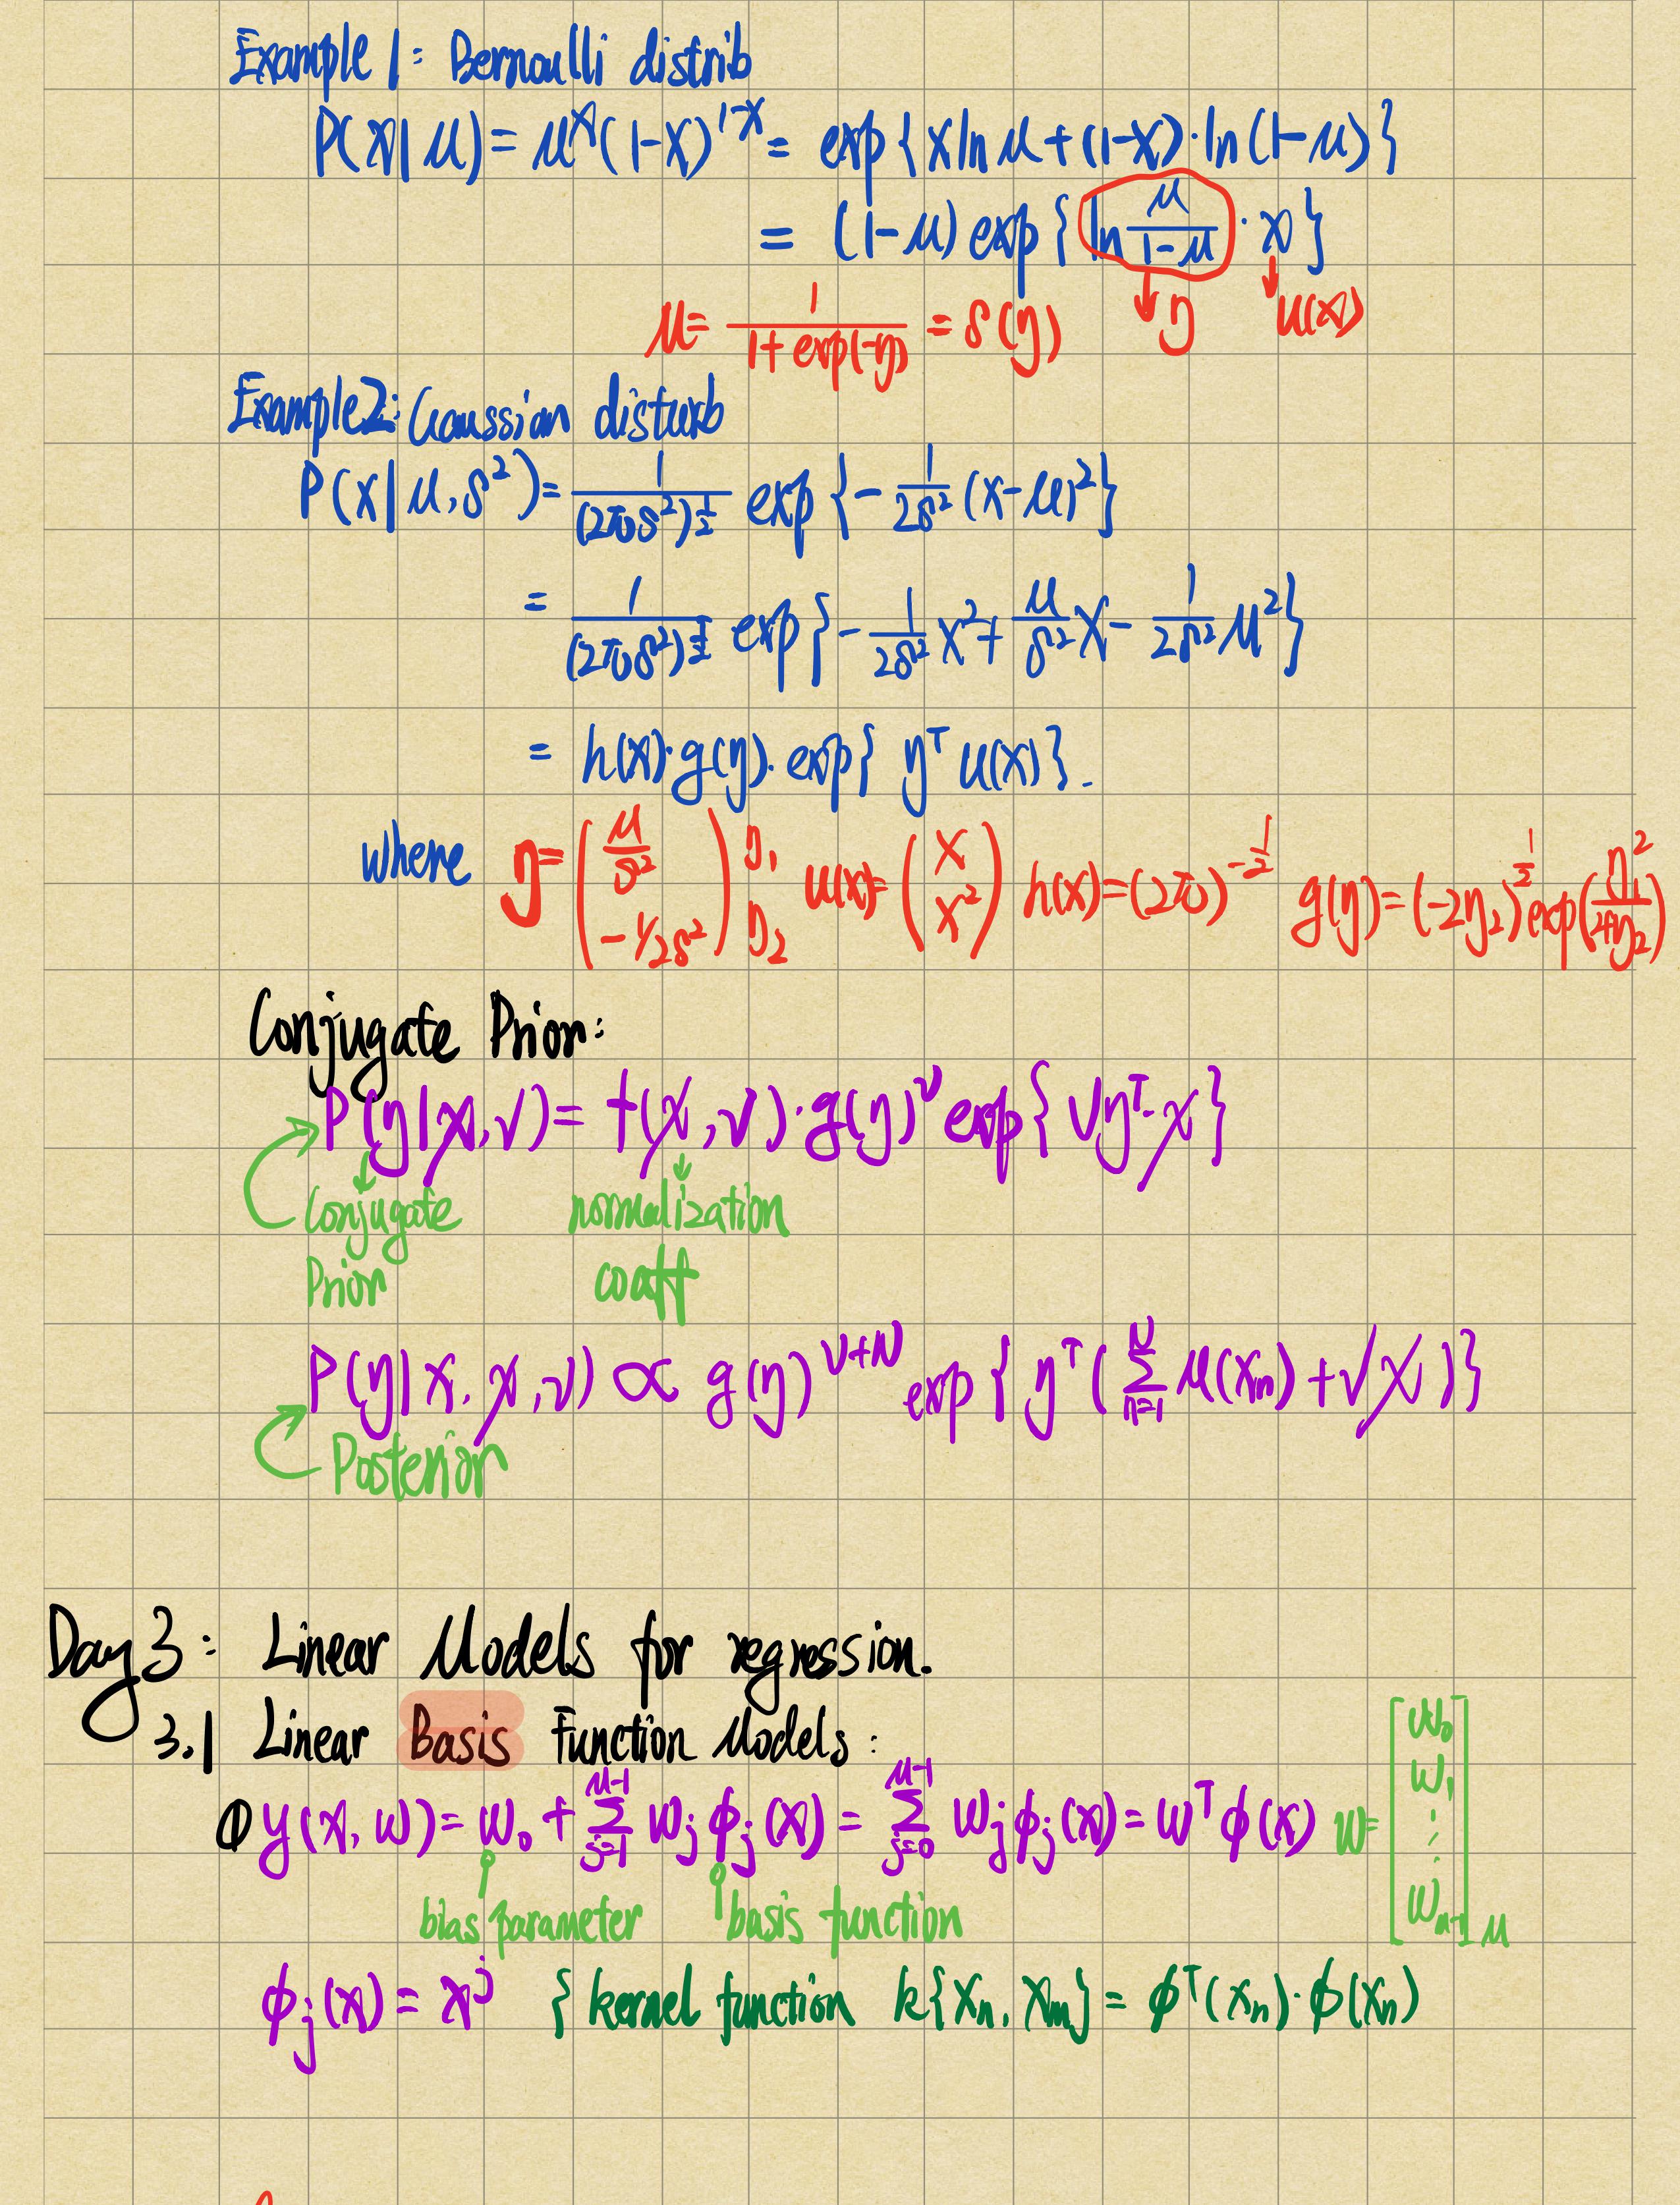 Example 1: Bernoulli distrib
P(x|μ) = μ^x (1-x)^{1-x} = exp{x ln μ + (1-x)·ln(1-μ)}
= (1-μ) exp{ln μ/(1-μ) · x}
μ = 1/(1+exp(-η)) = δ(η) ↓η ↓u(x)
Example 2: Gaussian disturb
P(x|μ,δ²) = 1/(2πδ²)^{1/2} exp{-1/(2δ²) (x-μ)²}
= 1/(2πδ²)^{1/2} exp{-1/(2δ²) x² + μ/δ² x - 1/(2δ²) μ²}
= h(x)·g(η)·exp{η^T u(x)}.
where η = (μ/δ² -1/2δ²) η₁ η₂ u(x) = (x x²) h(x) = (2π)^{-1/2} g(η) = (-2η₂)^{1/2} exp(η₁²/4η₂)
Conjugate Prior:
P(η|χ,ν) = f(χ,ν)·g(η)^ν exp{νη^T·χ}
Conjugate normalization
Prior coeff
P(η|x,χ,ν) ∝ g(η)^{ν+N} exp{η^T(∑_{n=1}^{N} μ(x_n) + νχ)}
Posterior
Day 3: Linear Models for regression.
3.1 Linear Basis Function Models:
① y(x,w) = w₀ + ∑_{j=1}^{M-1} w_j φ_j(x) = ∑_{j=0}^{M-1} w_j φ_j(x) = w^T φ(x) w = [w₀ w₁ ⋮ w_{M-1}]_M
bias parameter basis function
φ_j(x) = x^j { kernel function k{x_n, x_m} = φ^T(x_n)·φ(x_n)